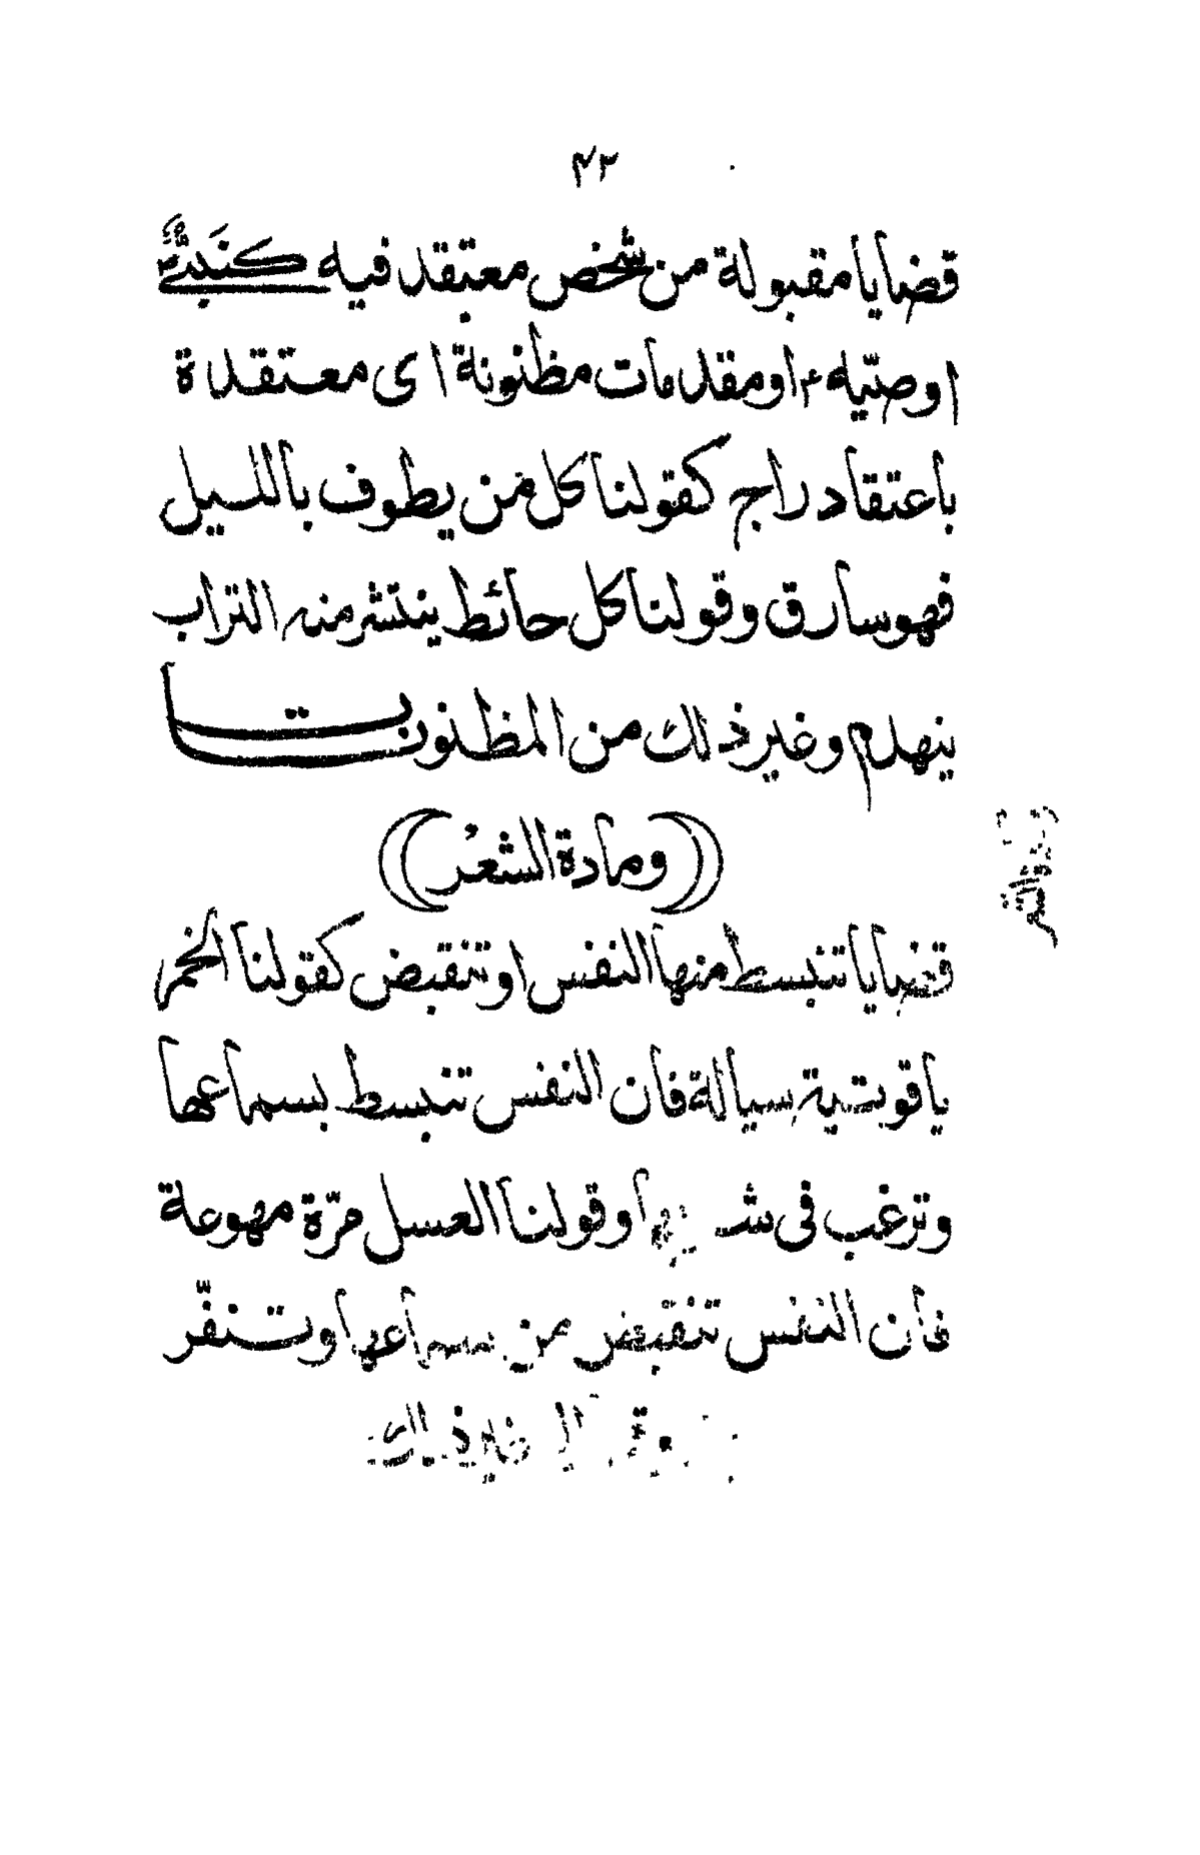 ۴۲
قضايا مقبولة من شخص معتقد فيه كنبيّ
او صيّه ۴ او مقدمات مظنونة اى معتقدة
باعتقاد راجح كقولنا كل من يطوف بالليل
فهو سارق وقولنا كل حائط ينتشر منه التراب
ينهدم وغير ذلك من المظنونات
(ومادة الشعر)
قضايا تنبسط منها النفس او تنقبض كقولنا الخمر
ياقوتية سيالة فان النفس تنبسط بسماعها
وترغب فى شربها وقولنا العسل مرّة مهوعة
فان النفس تنقبض من سماعها وتنفّر
غير ذلك